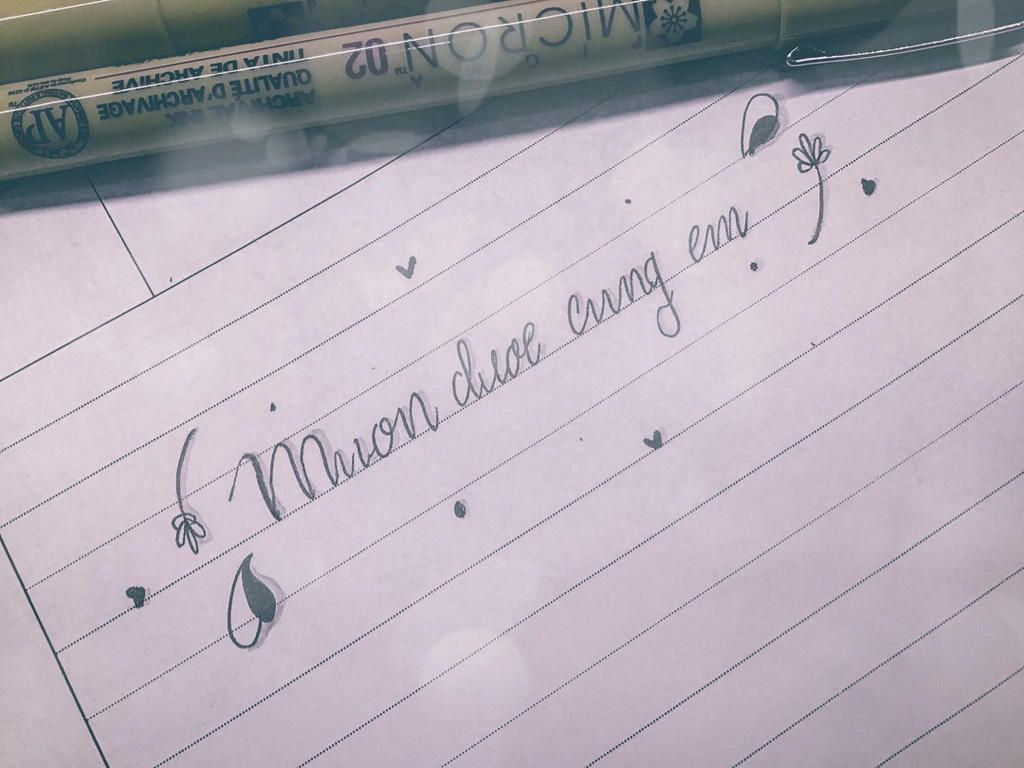 PIGMA
MICRON™ 02
ARCHIVAL INK
QUALITÉ D'ARCHIVAGE
TINTA DE ARCHIVE
AP
Muon duoc cung em